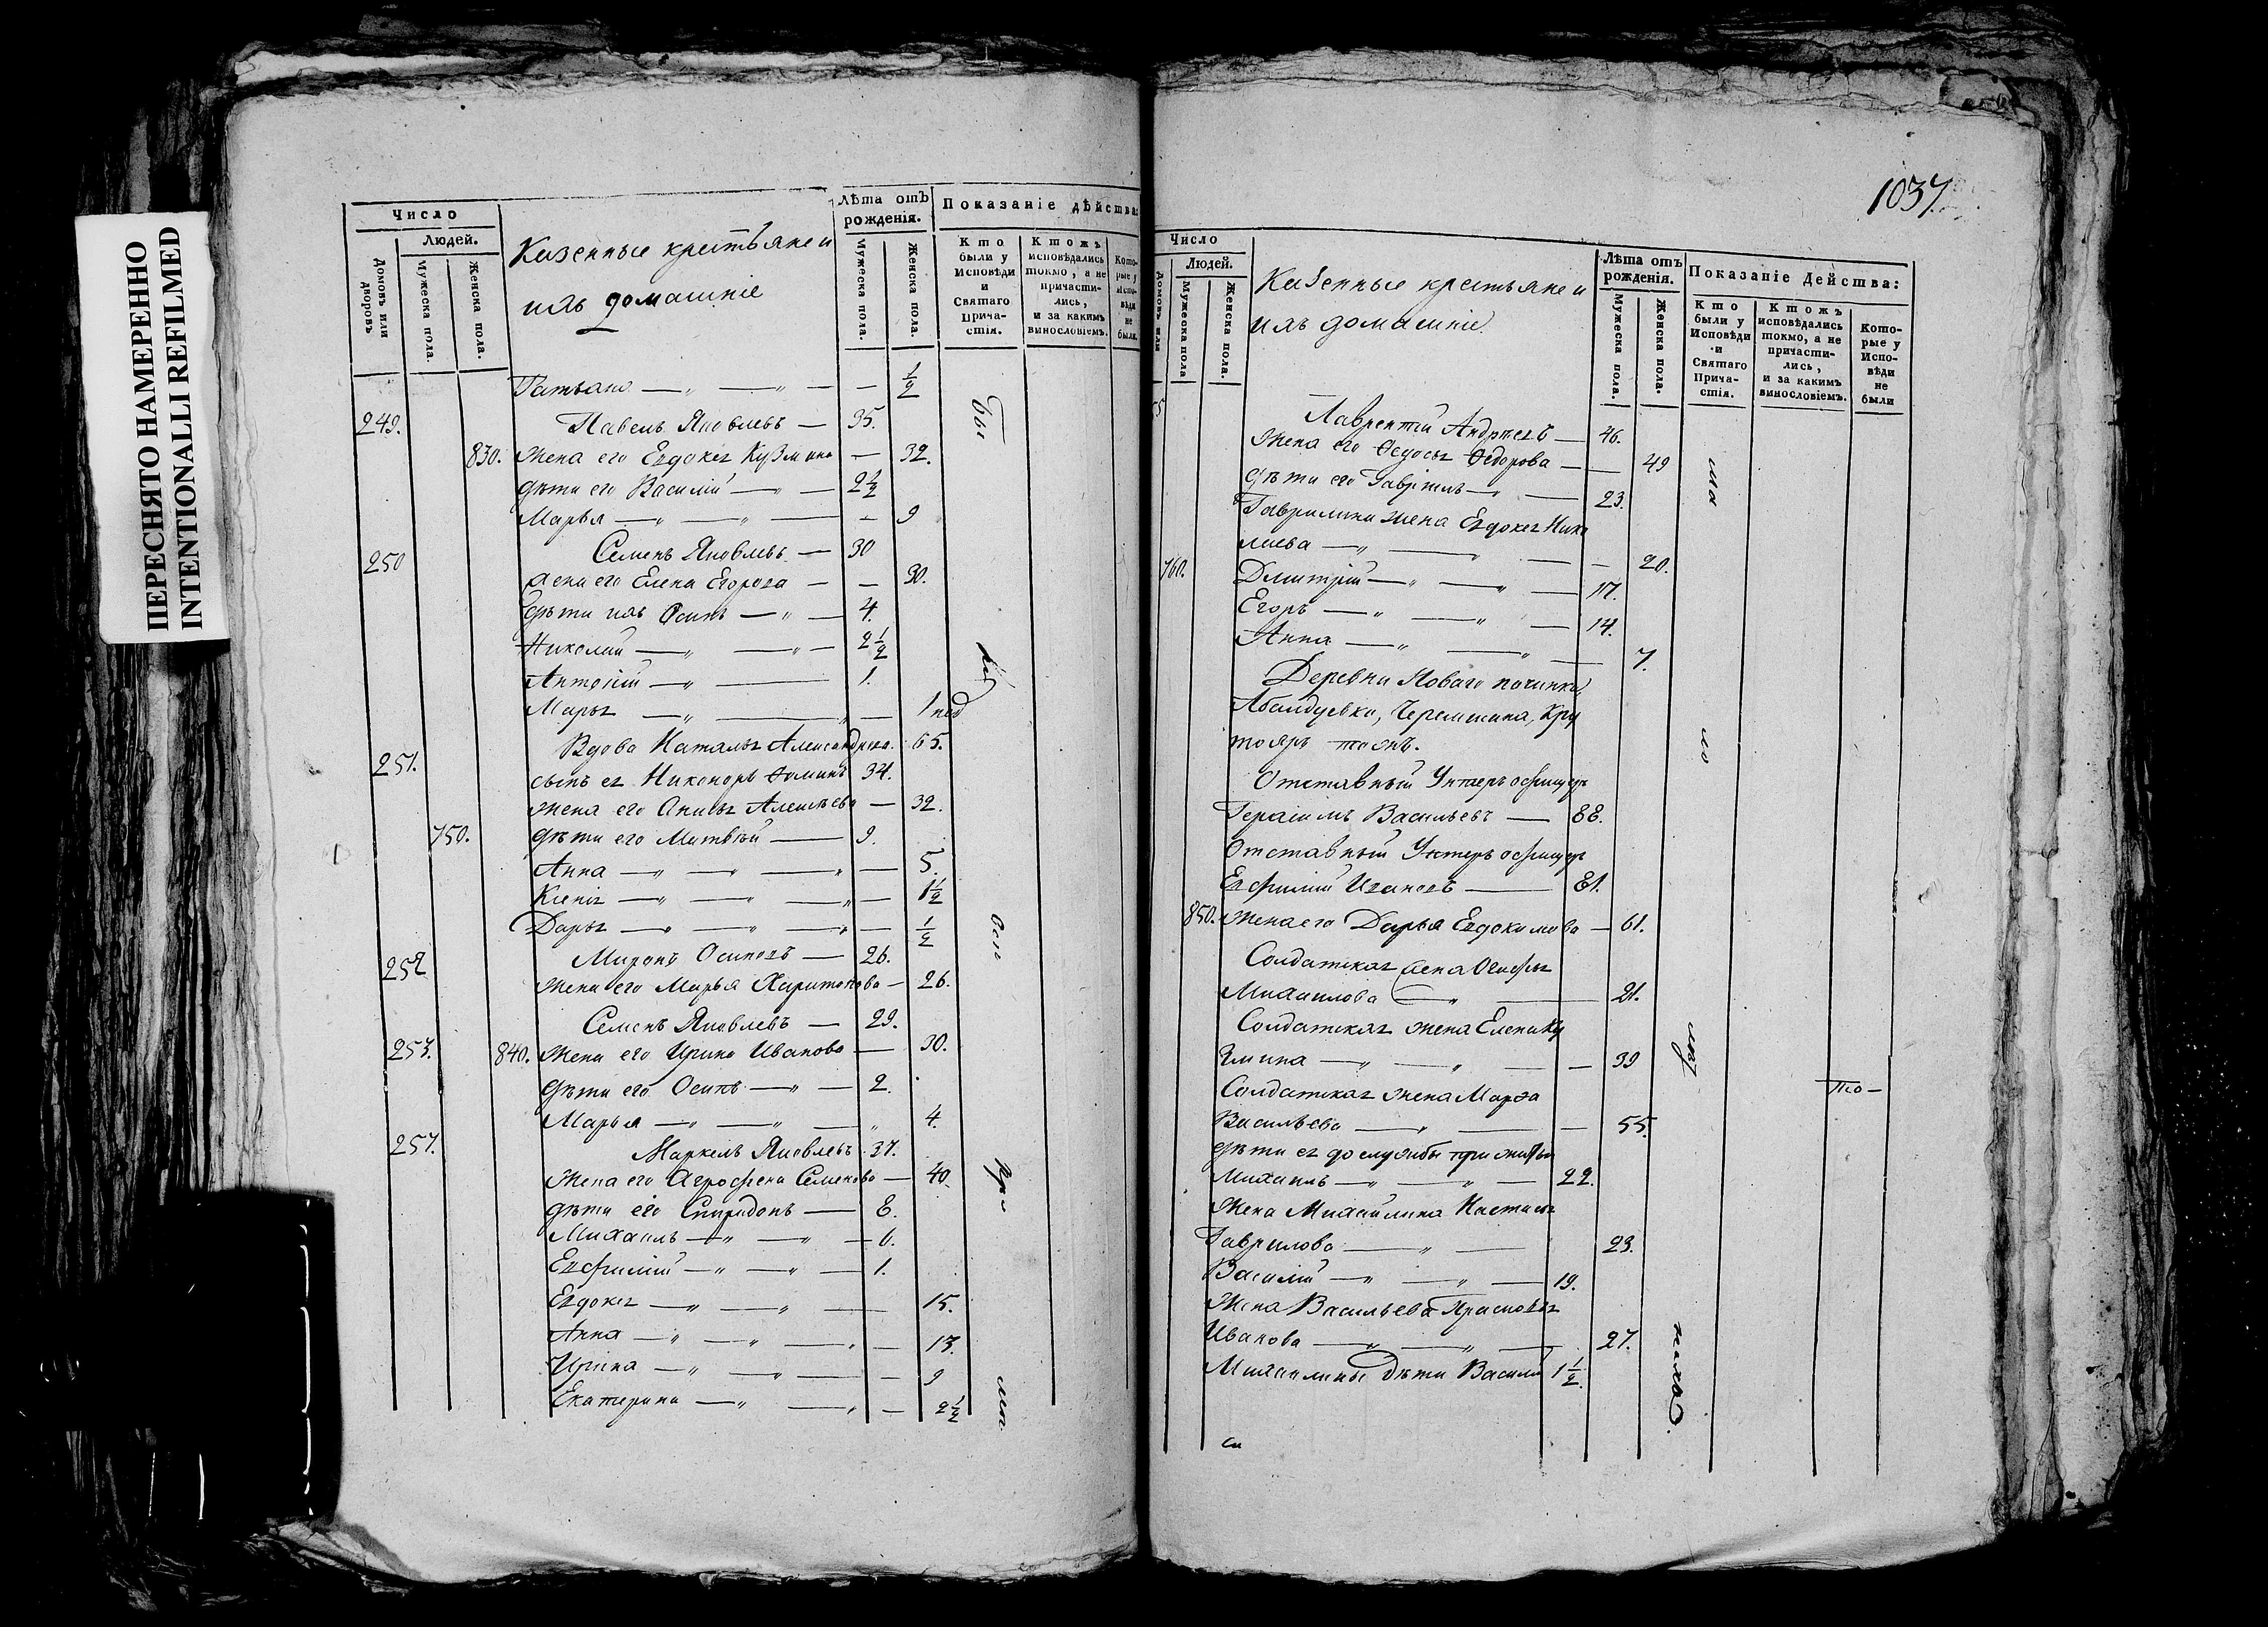 ПЕРЕСНЯТО НАМЕРЕННО
INTENTIONALLI REFILMED
Число
Людей.
Домовъ или дворовъ
Мужеска пола.
Женска пола.
Казенные крестьяне и
ихъ домашніе
Лѣта отъ рожденія.
Мужеска пола.
Женска пола.
Показаніе дѣйства:
Кто были у Исповѣди и Святаго Прича- стія.
Ктожъ исповѣдались токмо, а не причасти- лись, и за какимъ винословіемъ.
Кото- рые у Испо- вѣди не были.
Татьяна — „ — „ — — 1/2
249. Павелъ Яковлевъ — 35.
830. Жена его Евдокея Кузмина — 32.
Дѣти его Василий — „ — 2 1/2
Марья — „ — „ — 9
250 Семенъ Яковлевъ — 30
Жена его Елена Егорова — — 30.
Дѣти ихъ Осипъ — „ — 4.
Николай — „ — „ — 2 1/2
Антоній — „ — 1.
Марья — „ — „ — 1 нед
251. Вдова Наталья Александрова. 65.
сынъ ея Никоноръ Ѳоминъ 34.
жена его Анисья Алексѣева — 32.
750. дѣти его Матвѣй — 9.
Анна — „ — „ — „ — 5.
Ксенія — „ — „ — „ — 1 1/2
Дарья — „ — „ — „ — 1/2
252 Миронъ Осиповъ — 26.
жена его Марья Харитонова — 26.
253. Семенъ Яковлевъ — 29.
840. Жена его Ирина Иванова — 30.
дѣти его Осипъ — „ — 2.
Марья — „ — „ — „ 4.
254. Маркелъ Яковлевъ 37.
Жена его Агрофена Семенова — 40.
дѣти его Спиридонъ — 8.
Михаилъ — „ — „ — 6.
Евфимій — „ — „ — 1.
Евдокея — „ — „ — 15.
Анна — „ — „ — „ — 13.
Ирина — „ — „ — — 9
Екатерина — „ — „ — 2 1/2
1037.
Число
Людей.
Мужеска пола
Женска пола.
Казенные крестьяне и
ихъ домашніе
Лѣта отъ рожденія.
Мужеска пола.
Женска пола.
Показаніе Действа:
Кто были у Исповѣди и Святаго Прича- стія.
Ктожъ исповѣдались токмо, а не причасти- лись, и за какимъ винословіемъ.
Кото- рые у Испо- вѣди не были
Лаврентій Андреевъ — 46.
Жена его Ѳедосья Ѳедорова — — 49
Дѣти его Гавріилъ — „ — 23.
Гаврилина жена Евдокея Нико
лаева — „ — „ — — 20.
760. Дмитрій — „ — „ — 17.
Егоръ — „ — „ — 14.
Анна — „ — „ — 7.
Деревни Новаго починка,
Абалдуевки, Черемшина, Кру
тояръ тожъ.
Отставный Унтеръ офицеръ
Герасимъ Васильевъ — 88.
Отставный Унтеръ офицеръ
Евфимій Ивановъ — 81.
850. Жена его Дарья Евдокимова — 61.
Солдатская жена
Михаилова — „ — 21.
Солдатская жена Елена Ку
змина — „ — „ — — 39
Солдатская жена Марѳа
Васильева — „ — — 55.
дѣти ея до службы прижиты
Михаилъ — „ — „ — 22.
Жена Михайлина Настасья
Гаврилова — „ — 23.
Василій — „ — „ — 19.
Жена Васильева Прасковья
Иванова — „ — „ — 27.
Михаилины дѣти Василій 1 1/2
то —